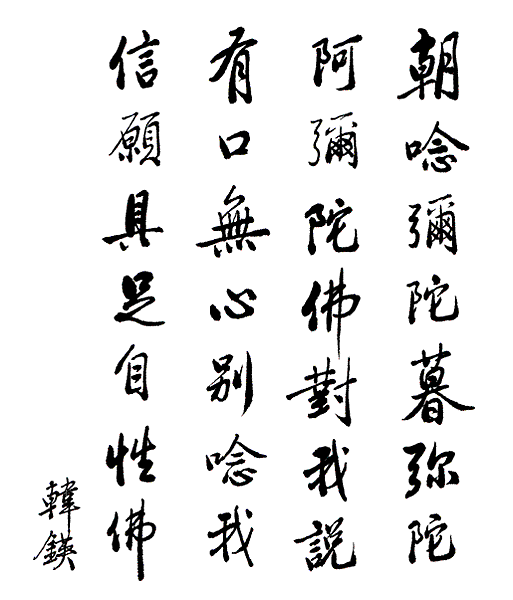 朝唸彌陀暮弥陀
阿彌陀佛對我説
有口無心别唸我
信願具足自性佛
韓鍈